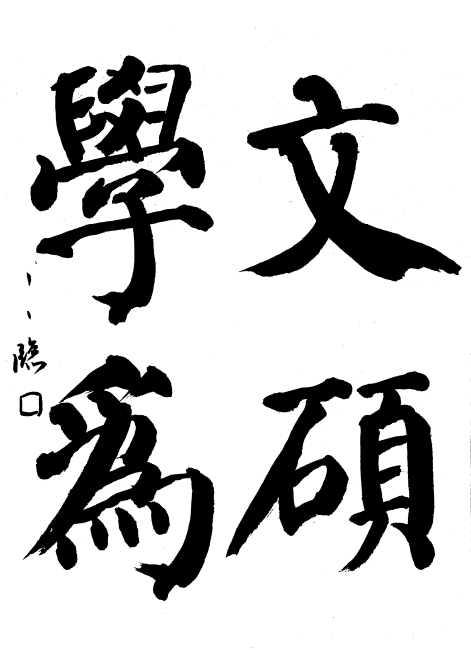 文碩
學爲
臨